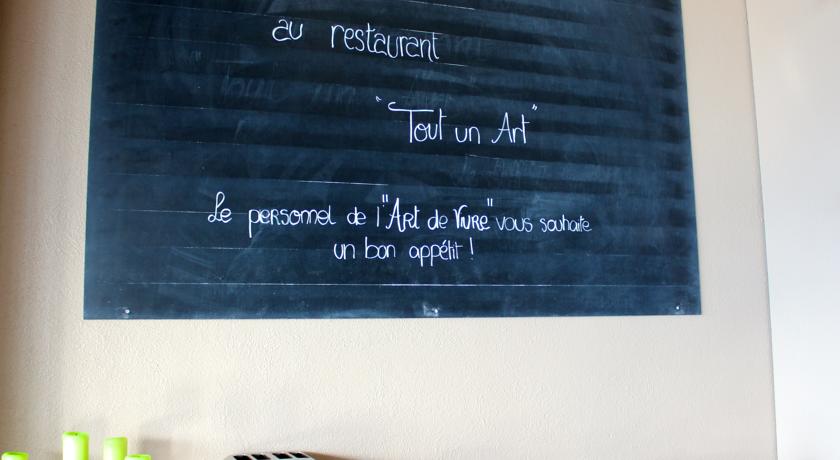 au restaurant
"Tout un Art"
Le personnel de l'"Art de Vivre" vous souhaite
un bon appétit !